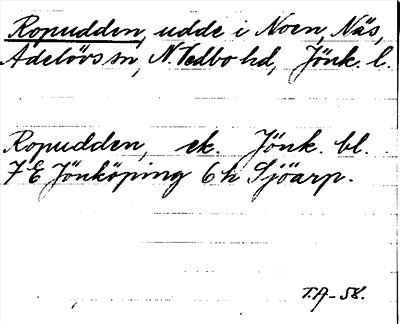 Ropudden, udde i Noen, Näs,
Adelövs sn, N. Vedbo hd, Jönk. l.
Ropudden, ek. Jönk. bl.
7 E Jönköping 6 h Sjöarp.
T.A-58.